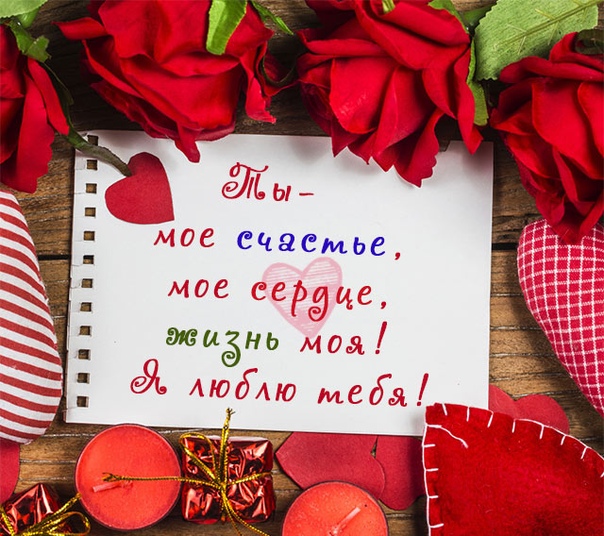 Ты-
мое счастье,
мое сердце,
жизнь моя!
Я люблю тебя!